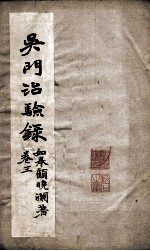 吳門治驗錄
如皋顧曉瀾著
卷三